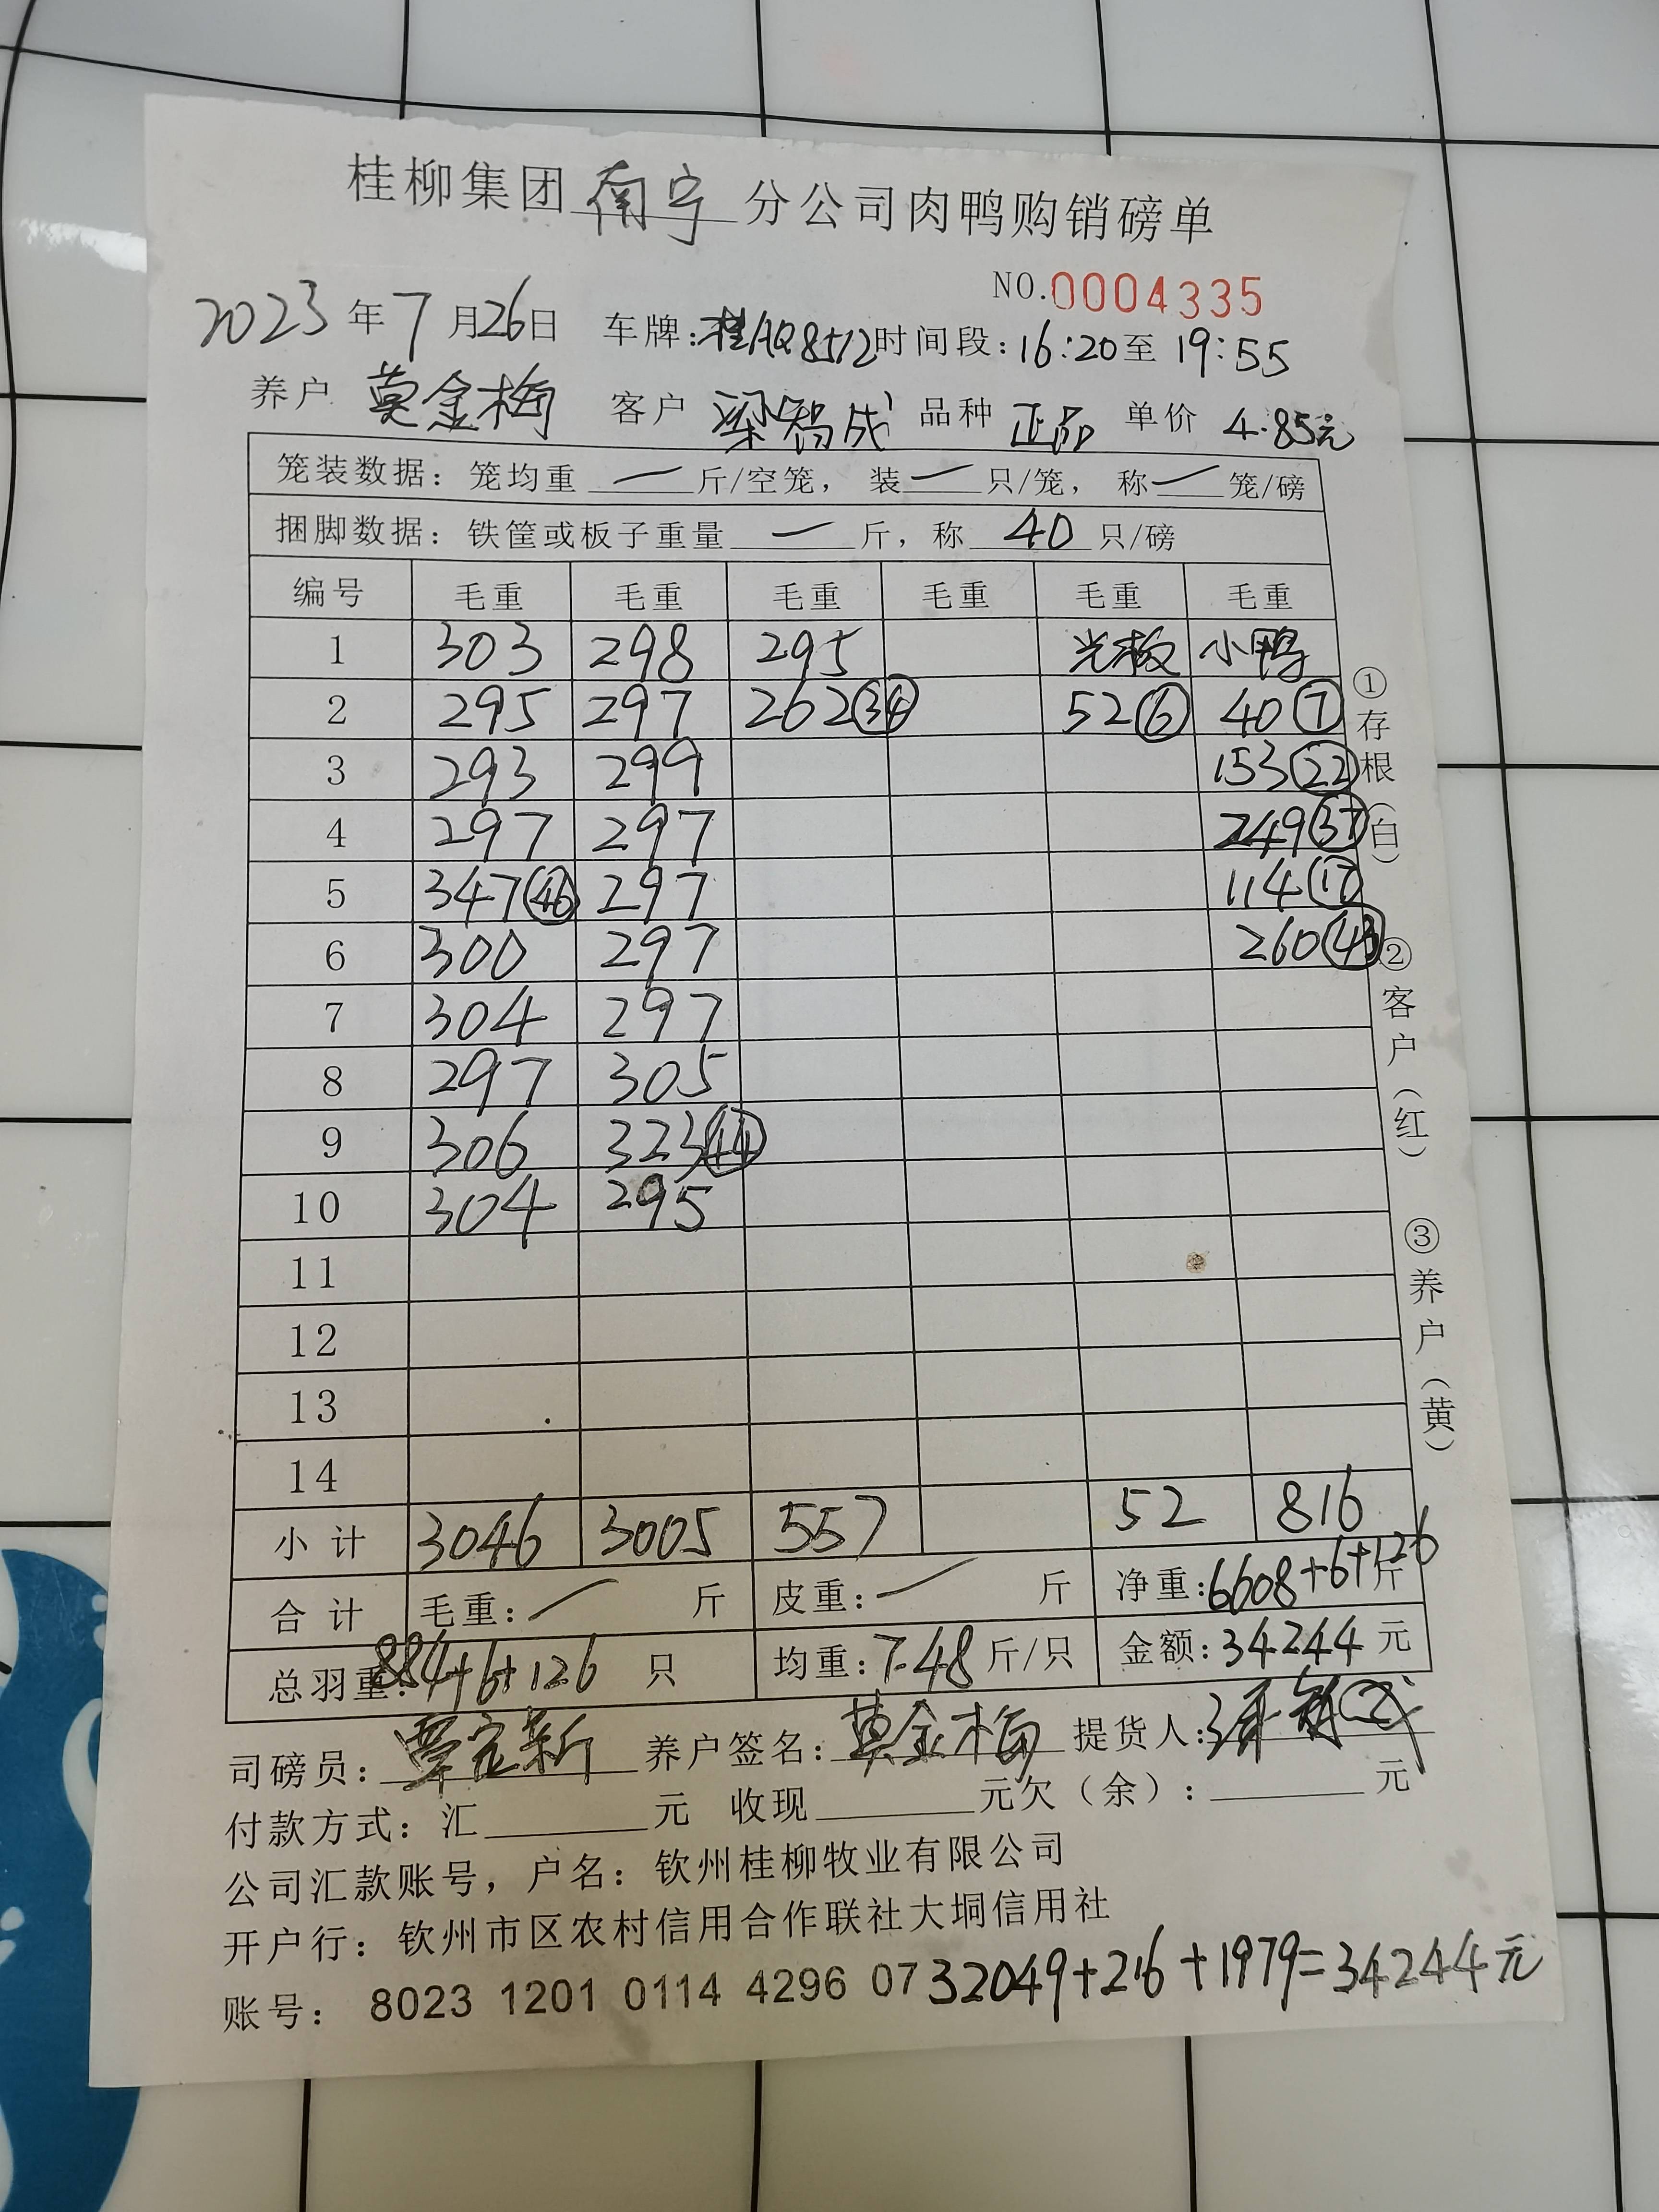 桂柳集团 南宁 分公司肉鸭购销磅单
NO.0004335
2023年7月26日 车牌:桂AQ8512 时间段:16:20至19:55
养户 莫金梅 客户 梁智成 品种 正品 单价 4.85元
笼装数据:笼均重 一 斤/空笼, 装 一 只/笼, 称 一 笼/磅
捆脚数据:铁筐或板子重量 一 斤,称 40 只/磅
编号 毛重 毛重 毛重 毛重 毛重 毛重
1 303 298 295 光板 小鸭
2 295 297 262㉞ 52⑥ 40⑦
3 293 299 153㉒
4 297 297 249㊲
5 347㊻ 297 114⑰
6 300 297 260㊸
7 304 297
8 297 305
9 306 323㊹
10 304 295
11
12
13
14
小计 3046 3005 557 52 816
合计 毛重:/ 斤 皮重:/ 斤 净重:6608+6+126斤
总羽重:884+6+126 只 均重:7.48斤/只 金额:34244元
司磅员: 养户签名:莫金梅 提货人:
付款方式:汇 元 收现 元欠(余): 元
公司汇款账号,户名:钦州桂柳牧业有限公司
开户行:钦州市区农村信用合作联社大垌信用社
账号: 8023 1201 0114 4296 07 32049+216+1979=34244元
①存根(白) ②客户(红) ③养户(黄)